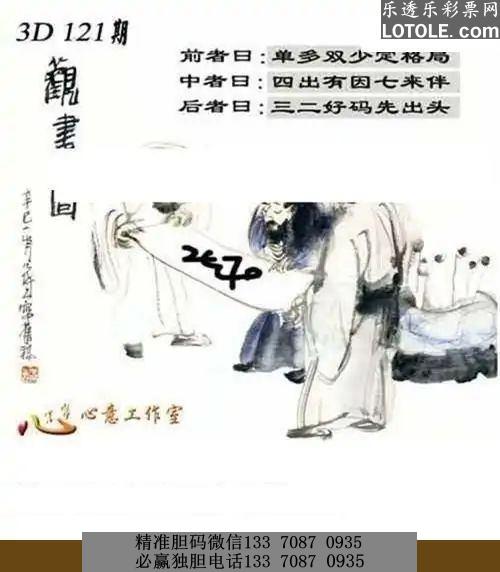 乐透乐彩票网
LOTOLE.COM
3D 121期
前者曰:单多双少定格局
中者曰:四出有因七来伴
后者曰:三二好码先出头
觀書
心意工作室
精准胆码微信133 7087 0935
必赢独胆电话133 7087 0935